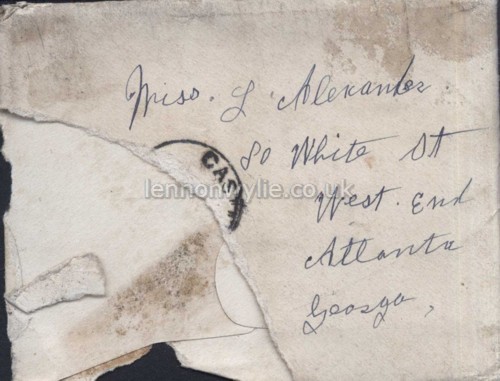 Miss. L Alexander
80 White St
CAS
lennonwylie.co.uk
West. End
Atlanta
Georga,